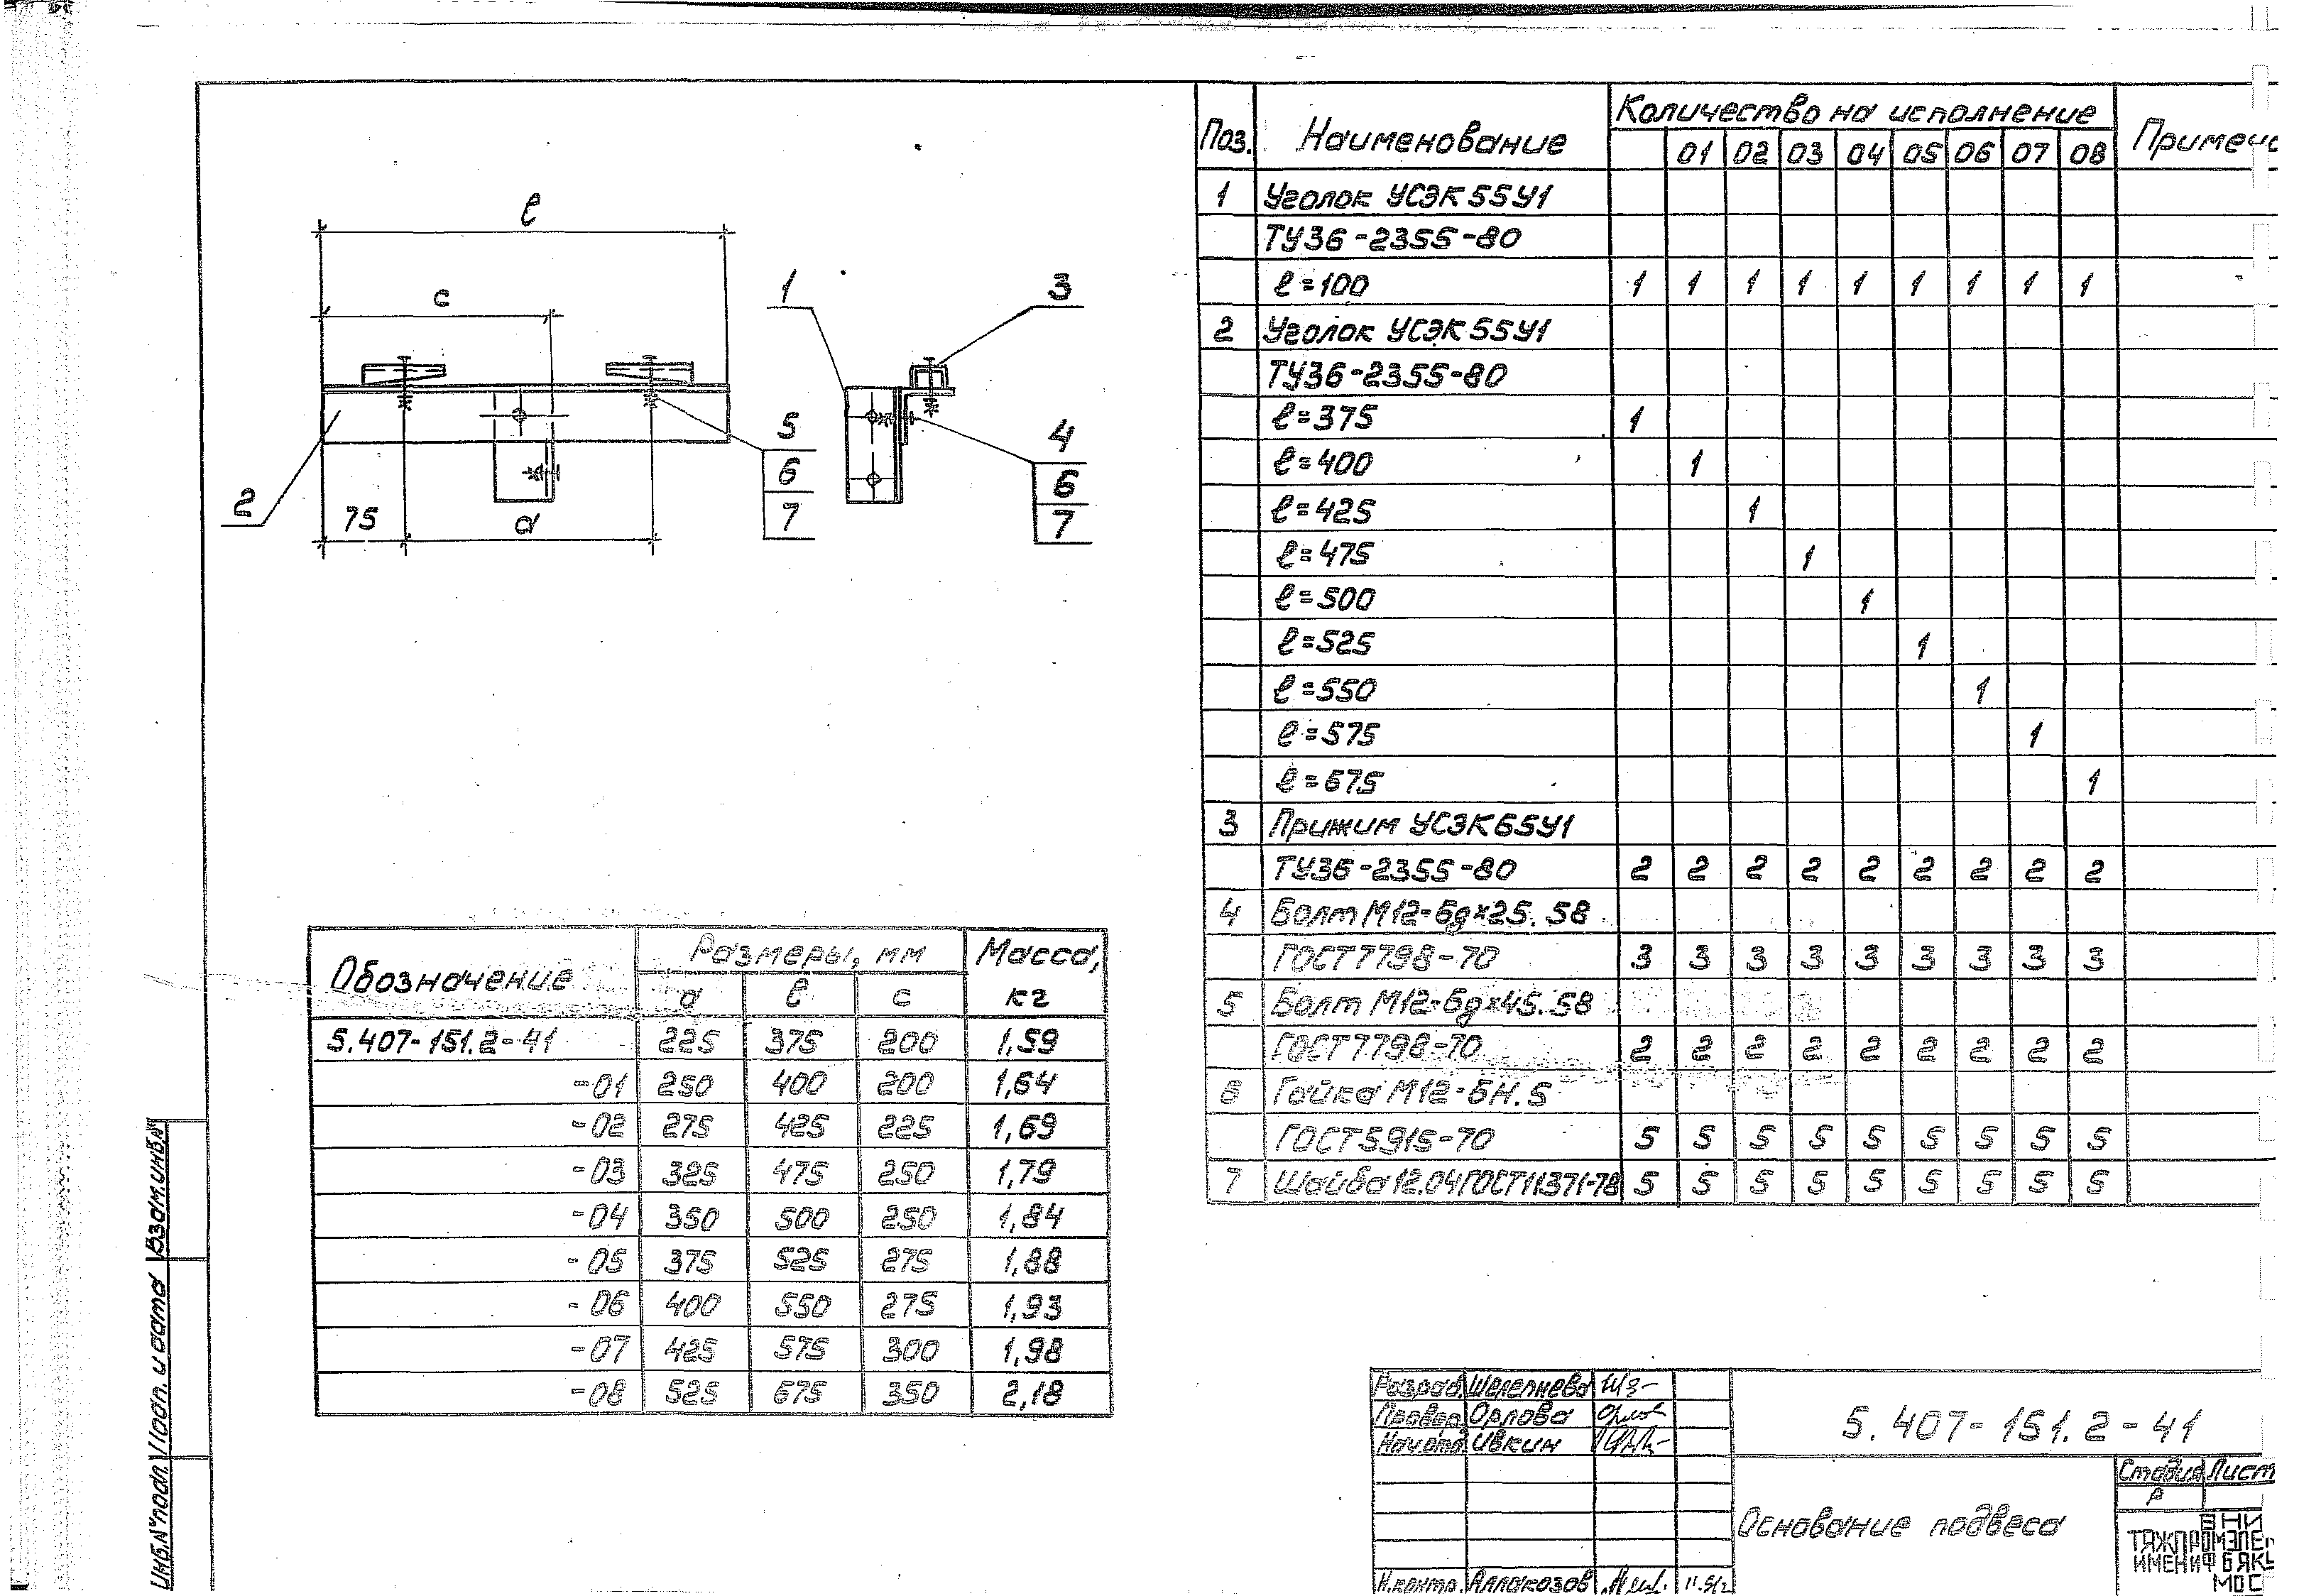 ℓ
c
1
3
2
75
a
5
6
7
4
6
7
Поз. Наименование Количество на исполнение
01 02 03 04 05 06 07 08
1 Уголок УСЭК55У1
ТУ36-2355-80
ℓ=100 1 1 1 1 1 1 1 1 1
2 Уголок УСЭК55У1
ТУ36-2355-80
ℓ=375 1
ℓ=400 1
ℓ=425 1
ℓ=475 1
ℓ=500 1
ℓ=525 1
ℓ=550 1
ℓ=575 1
ℓ=675 1
3 Прижим УСЭК65У1
ТУ36-2355-80 2 2 2 2 2 2 2 2 2
4 Болт М12-6g×25.58
ГОСТ7798-70 3 3 3 3 3 3 3 3 3
5 Болт М12-6g×45.58
ГОСТ7798-70 2 2 2 2 2 2 2 2 2
6 Гайка М12-6Н.5
ГОСТ5915-70 5 5 5 5 5 5 5 5 5
7 Шайба12.04ГОСТ11371-78 5 5 5 5 5 5 5 5 5
Обозначение Размеры, мм Масса,
a ℓ c кг
5.407-151.2-41 225 375 200 1,59
-01 250 400 200 1,64
-02 275 425 225 1,69
-03 325 475 250 1,79
-04 350 500 250 1,84
-05 375 525 275 1,88
-06 400 550 275 1,93
-07 425 575 300 1,98
-08 525 675 350 2,18
Взам.инв.№
Подп. и дата
Инв.№подл.
Разраб. Шелепнева
Провер. Орлова
Нач.отд. Ивкин
Н.контр. Аллакозов
5.407-151.2-41
Основание подвеса
Стадия Лист
Р
ВНИ
ТЯЖПРОМЭЛЕ
ИМЕНИ Ф Б ЯК
МОС